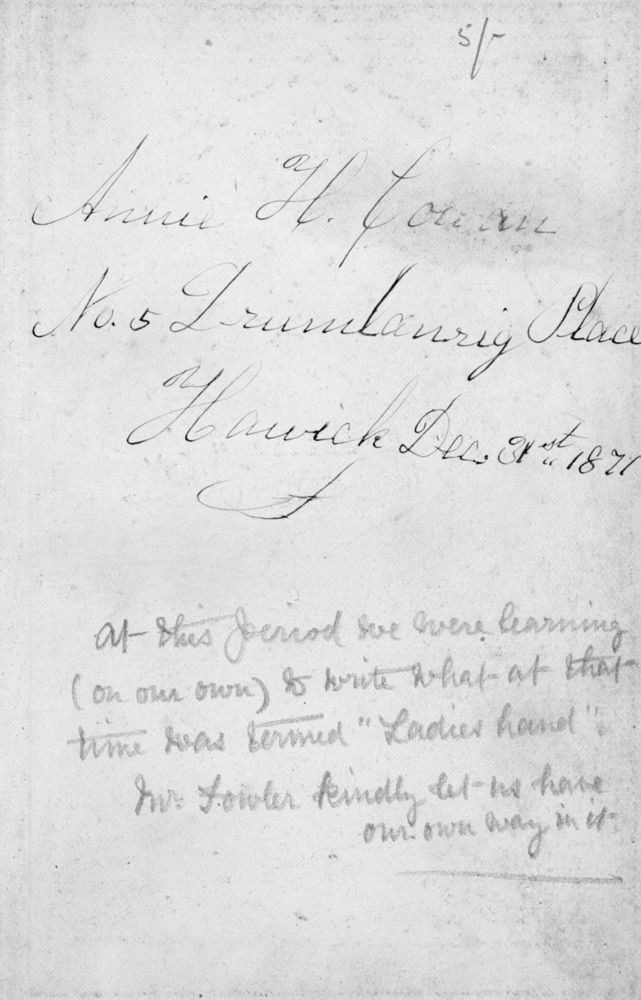 5/-
Annie H. Cowan
No. 5 Drumlanrig Place
Hawick Dec. 31st 1871
At this period we were learning
(on our own) to write what at that
time was termed "Ladies hand".
Mr. Fowler kindly let us have
our own way in it.